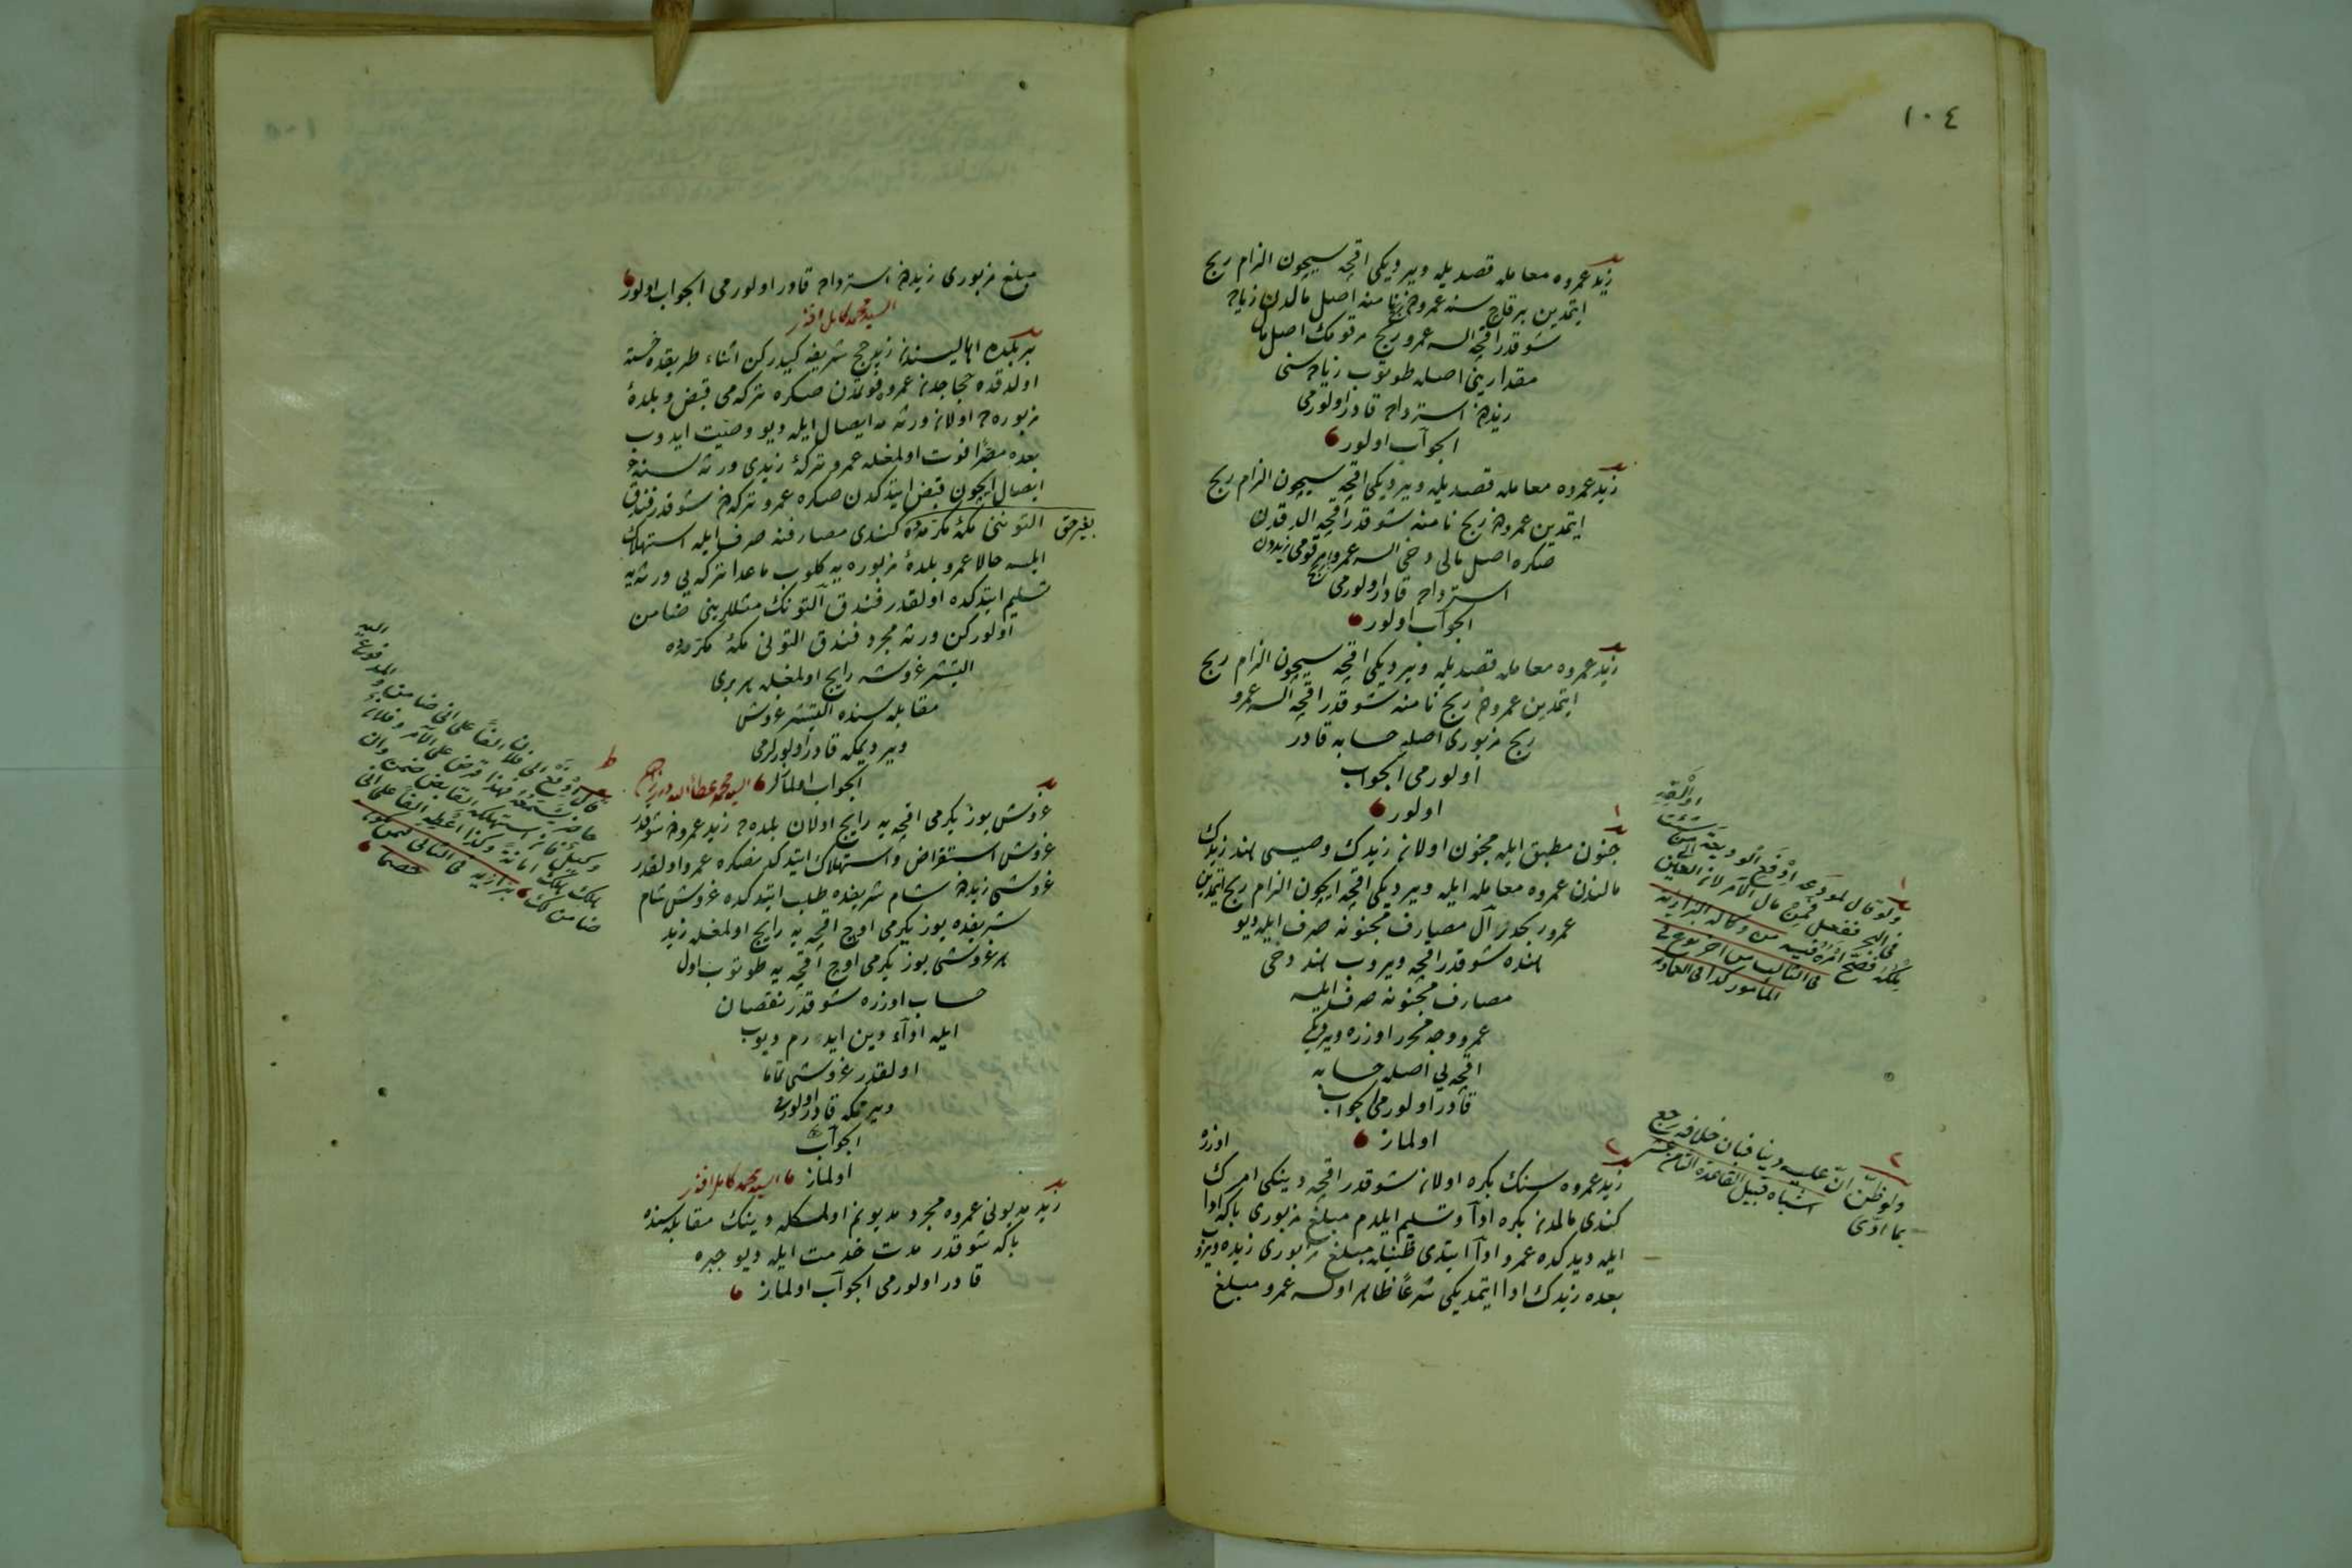 ١٠٤
زيد عمروه معامله قصديله ويرديكى اقچه سيچون الزام ربح
ايتمدين برقاج سنه عمرودن ربح نامنه اصل مالدن زياده
شو قدر اقچه السه عمرو ربح مرقومك اصل مال
مقدارينى اصله طوتوب زياده سنى
زيددن استرداده قادر اولورمى
الجواب اولور
زيد عمروه معامله قصديله ويرديكى اقچه سيچون الزام ربح
ايتمدين عمرودن ربح نامنه شو قدر اقچه الدقدن
صكره اصل مالى دخى السه عمرو ربح مرقومى زيددن
استرداده قادر اولورمى
الجواب اولور
زيد عمروه معامله قصديله ويرديكى اقچه سيچون الزام ربح
ايتمدين عمرودن ربح نامنه شو قدر اقچه السه عمرو
ربح مزبورى اصله حسابه قادر
اولورمى الجواب
اولور
جنون مطبق ايله مجنون اولان زيدك وصيسى هند زيدك
مالندن عمروه معامله ايله ويرديكى اقچه ايچون الزام ربح ايتمدين
عمرو ربحدن آل مصارف مجنونه صرف ايله ديو
هنده شو قدر اقچه ويروب هند دخى
مصارف مجنونه صرف ايلسه
عمرو وجه محرر اوزره ويرديكى
اقچه يى اصله حسابه
قادر اولورمى الجواب
اولماز
زيد عمروه سنك بكره اولان شو قدر اقچه دينكى امرك اوزره
كندى مالمدن بكره ادآ وتسليم ايلدم مبلغ مزبورى باكه ادا
ايله ديدكده عمرو ادآ ايتدى ظنيله مبلغ مزبورى زيده ويروب
بعده زيدك ادا ايتمديكى شرعاً ظاهر اولسه عمرو مبلغ
ولو قال لمودعه ادفع الوديعة الى من شئت
فى البحر ففعل فمن مال الآمر لان العين
ملكه فصح امره فيه من وكالة البزازيه
ولو ظن ان عليه دينا فبان خلافه رجع
بما ادى اشباه قبيل القاعدة الثامنة عشر
مبلغ مزبورى زيددن استرداده قادر اولورمى الجواب اولور
السيد محمد كامل افندى
بر بلده اهاليسندن زيد حج شريفه كيدركن اثناء طريقده خسته
اولدقده حجاجدن عمروه فوتمدن صكره تركه مى قبض و بلدهٔ
مزبوره ده اولان ورثه مه ايصال ايله ديو وصيت ايدوب
بعده مصراً فوت اولمغله عمرو تركهٔ زيدى ورثه سنه
ايصال ايچون قبض ايتدكدن صكره عمرو تركه دن شو قدر فندق
التوننى مكهٔ مكرمه ده كندى مصارفنه صرف ايله استهلاك
بغير حق
ايلسه حالا عمرو بلدهٔ مزبوره يه كلوب ماعدا تركه يى ورثه يه
تسليم ايتدكده اولقدر فندق آلتونك مثللرينى ضامن
اولوركن ورثه مجرد فندق التونى مكهٔ مكرمه ده
التيشر غروشه رايج اولمغله هر برى
مقابله سنده التيشر غروش
ويرديمكه قادر اولورلرمى
الجواب اولمازلر السيد محمد عطاء الله
غروش يوز يكرمى اقچه يه رايج اولان بلده ده زيد عمرودن شو قدر
غروش استقراض و استهلاك ايتدكدنصكره عمرو اولقدر
غروشى زيددن شام شريفده طلب ايتدكده غروش شام
شريفده يوز يكرمى اوچ اقچه يه رايج اولمغله زيد
هر غروشى يوز يكرمى اوچ اقچه يه طوتوب اول
حساب اوزره شو قدر نقصان
ايله ادآء دين ايدرم ديوب
اولقدر غروشى تماما
ويرمكه قادر اولورمى
الجواب
اولماز السيد محمد كامل افندى
زيد مديونى عمروه مجرد مديونم اولمكله دينك مقابله سنده
باكه شو قدر مدت خدمت ايله ديو جبره
قادر اولورمى الجواب اولماز
قال ادفع الى فلان الفاً على انى ضامن
حاضر يسمع فهذا قرض على الآمر وفلان
وكيل فان استهلكه القابض ضمن وان
هلك هلك امانةً وكذا اعطه الفاً على انى
ضامن لك بزازيه فى الثانى